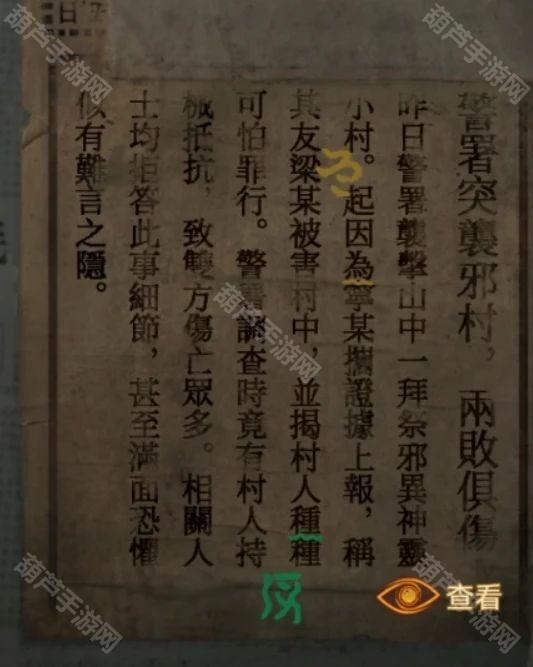 警署突襲邪村，兩敗俱傷
昨日警署襲擊山中一拜祭邪異神靈
小村。起因為寧某攜證據上報，稱
其友梁某被害村中，並揭村人種種
可怕罪行。警署調查時竟有村人持
械抵抗，致雙方傷亡眾多。相關人
士均拒答此事細節，甚至滿面恐懼
似有難言之隱。
查看
葫芦手游网
葫芦手游网
葫芦手游网
葫芦手游网
葫芦手游网